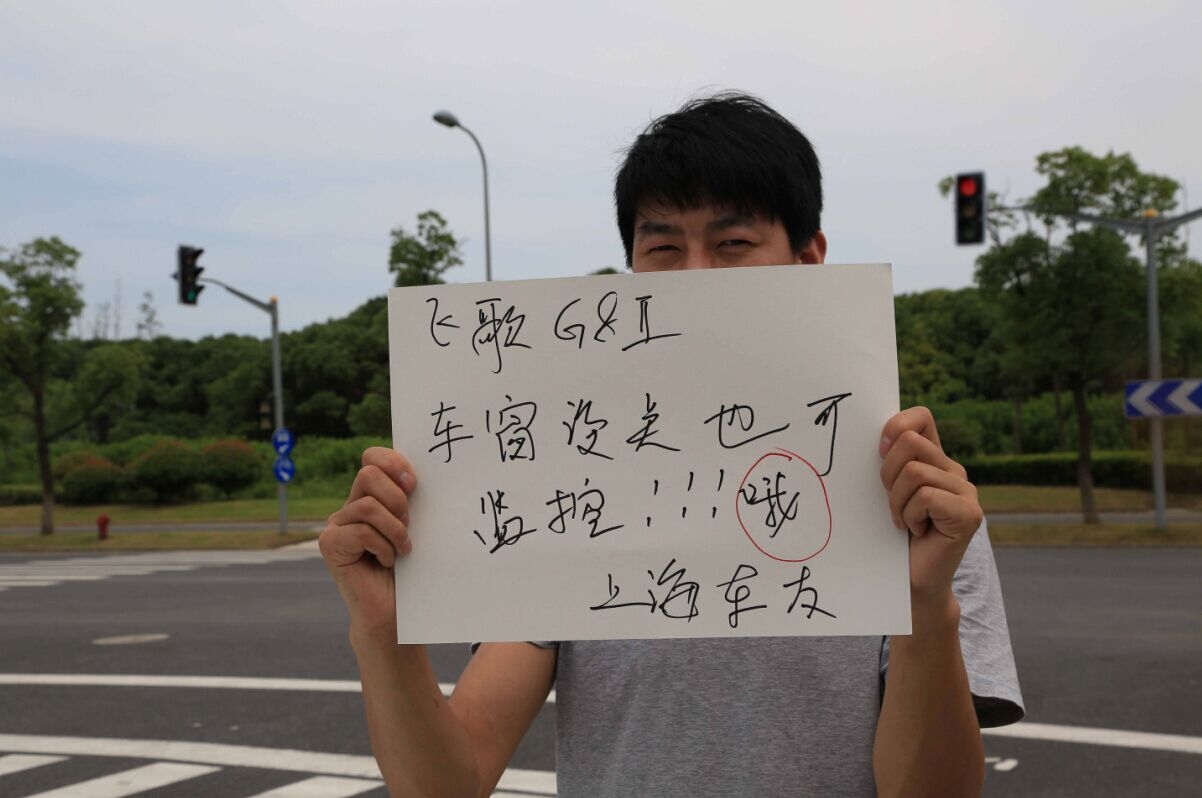 飞歌 G8 II
车窗没关也可
监控!!!哦
上海车友